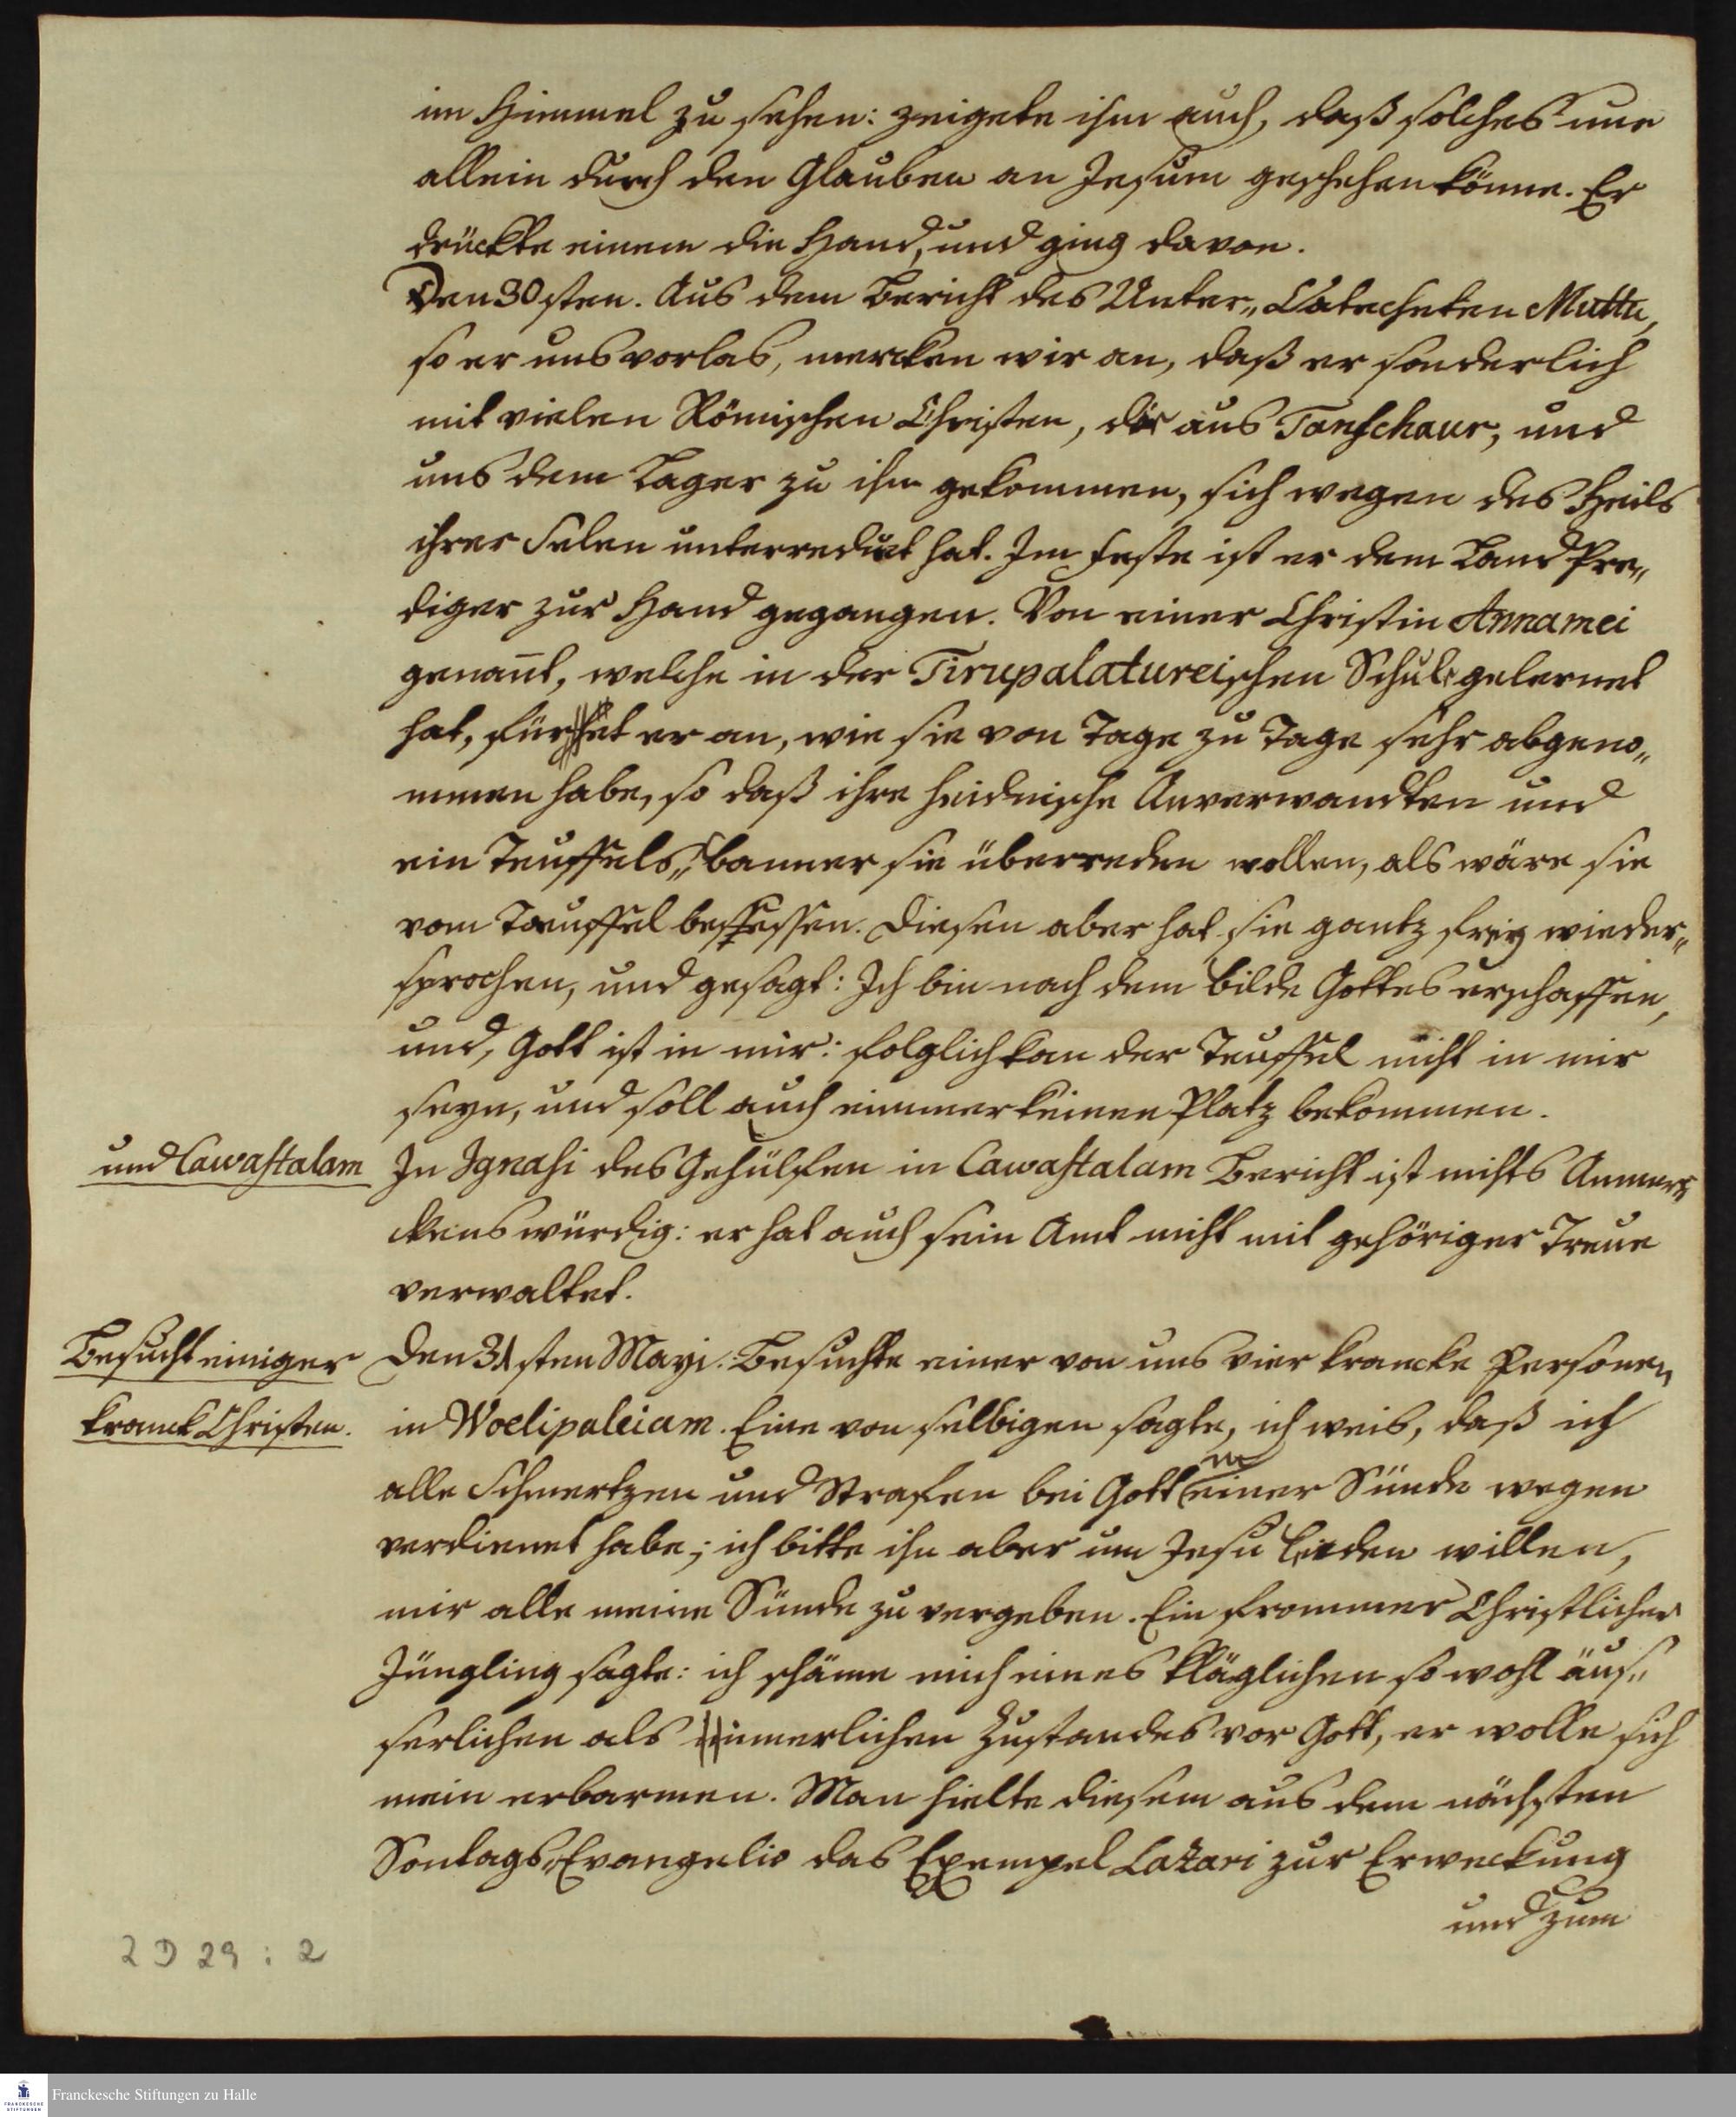 im Himmel zu sehen: zeigete ihm auch, daß solches nur
allein durch den Glauben an Jesum geschehen könne. Er
drückte einem die Hand, und ging davon.
Den 30sten. Aus dem Bericht des Unter„Catecheten Muttu,
so er uns vorlas, mercken wir an, daß er sonderlich
mit vielen Römischen Christen, die aus Tanschaur, und
aus dem Lager zu ihm gekommen, sich wegen des Heils
ihrer Selen unterredet hat. Im Feste ist er dem Land Pre„
diger zur Hand gegangen. Von einer Christin Annamei
genant, welche in der Tirupalatureischen Schule gelernet
hat, führet er an, wie sie von Tage zu Tage sehr abgeno„
mmen habe, so daß ihre heidnische Anverwandten und
ein Teuffels„banner sie überreden wollen, als wäre sie
vom Teuffel besessen. Diesen aber hat sie gantz frey wieder„
sprochen, und gesagt: Ich bin nach dem Bilde Gottes erschaffen,
und, Gott ist in mir: folglich kan der Teuffel nicht in mir
seyn, und soll auch nimmer keinen Platz bekommen.
und Cawastalam
In Ignasi des Gehülfen in Cawastalam Bericht ist nichts Anmer„
ckens würdig: er hat auch sein Amt nicht mit gehöriger Treue
verwaltet.
Besucht einiger
kranck Christen.
Den 31sten Mayi. Besuchte einer von uns vier krancke Personen
in Woelipaleiam. Eine von selbigen sagte, ich weis, daß ich
alle Schmertzen und Strafen bei Gott meiner Sünde wegen
verdienet habe; ich bitte ihn aber um Jesu Leiden willen,
mir alle meine Sünde zu vergeben. Ein frommer Christlicher
Jüngling sagte: ich schäme mich eines kläglichen so wohl äus„
serlichen als innerlichen Zustandes vor Gott, er wolle sich
mein erbarmen. Man hielte diesem aus dem nächsten
Sontags„Evangelio das Exempel Lazari zur Erweckung
und zum
2 D 29 : 2
Franckesche Stiftungen zu Halle
FRANCKESCHE
STIFTUNGEN